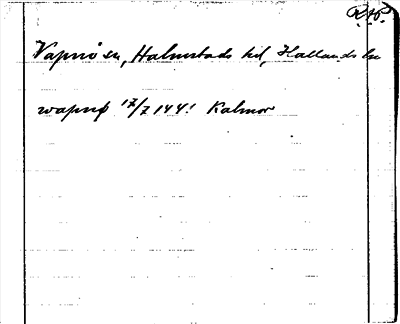 R.A.P.
Vapnö sn, Halmstads hd, Hallands län
wapnø 17/7 1441 Kalmar